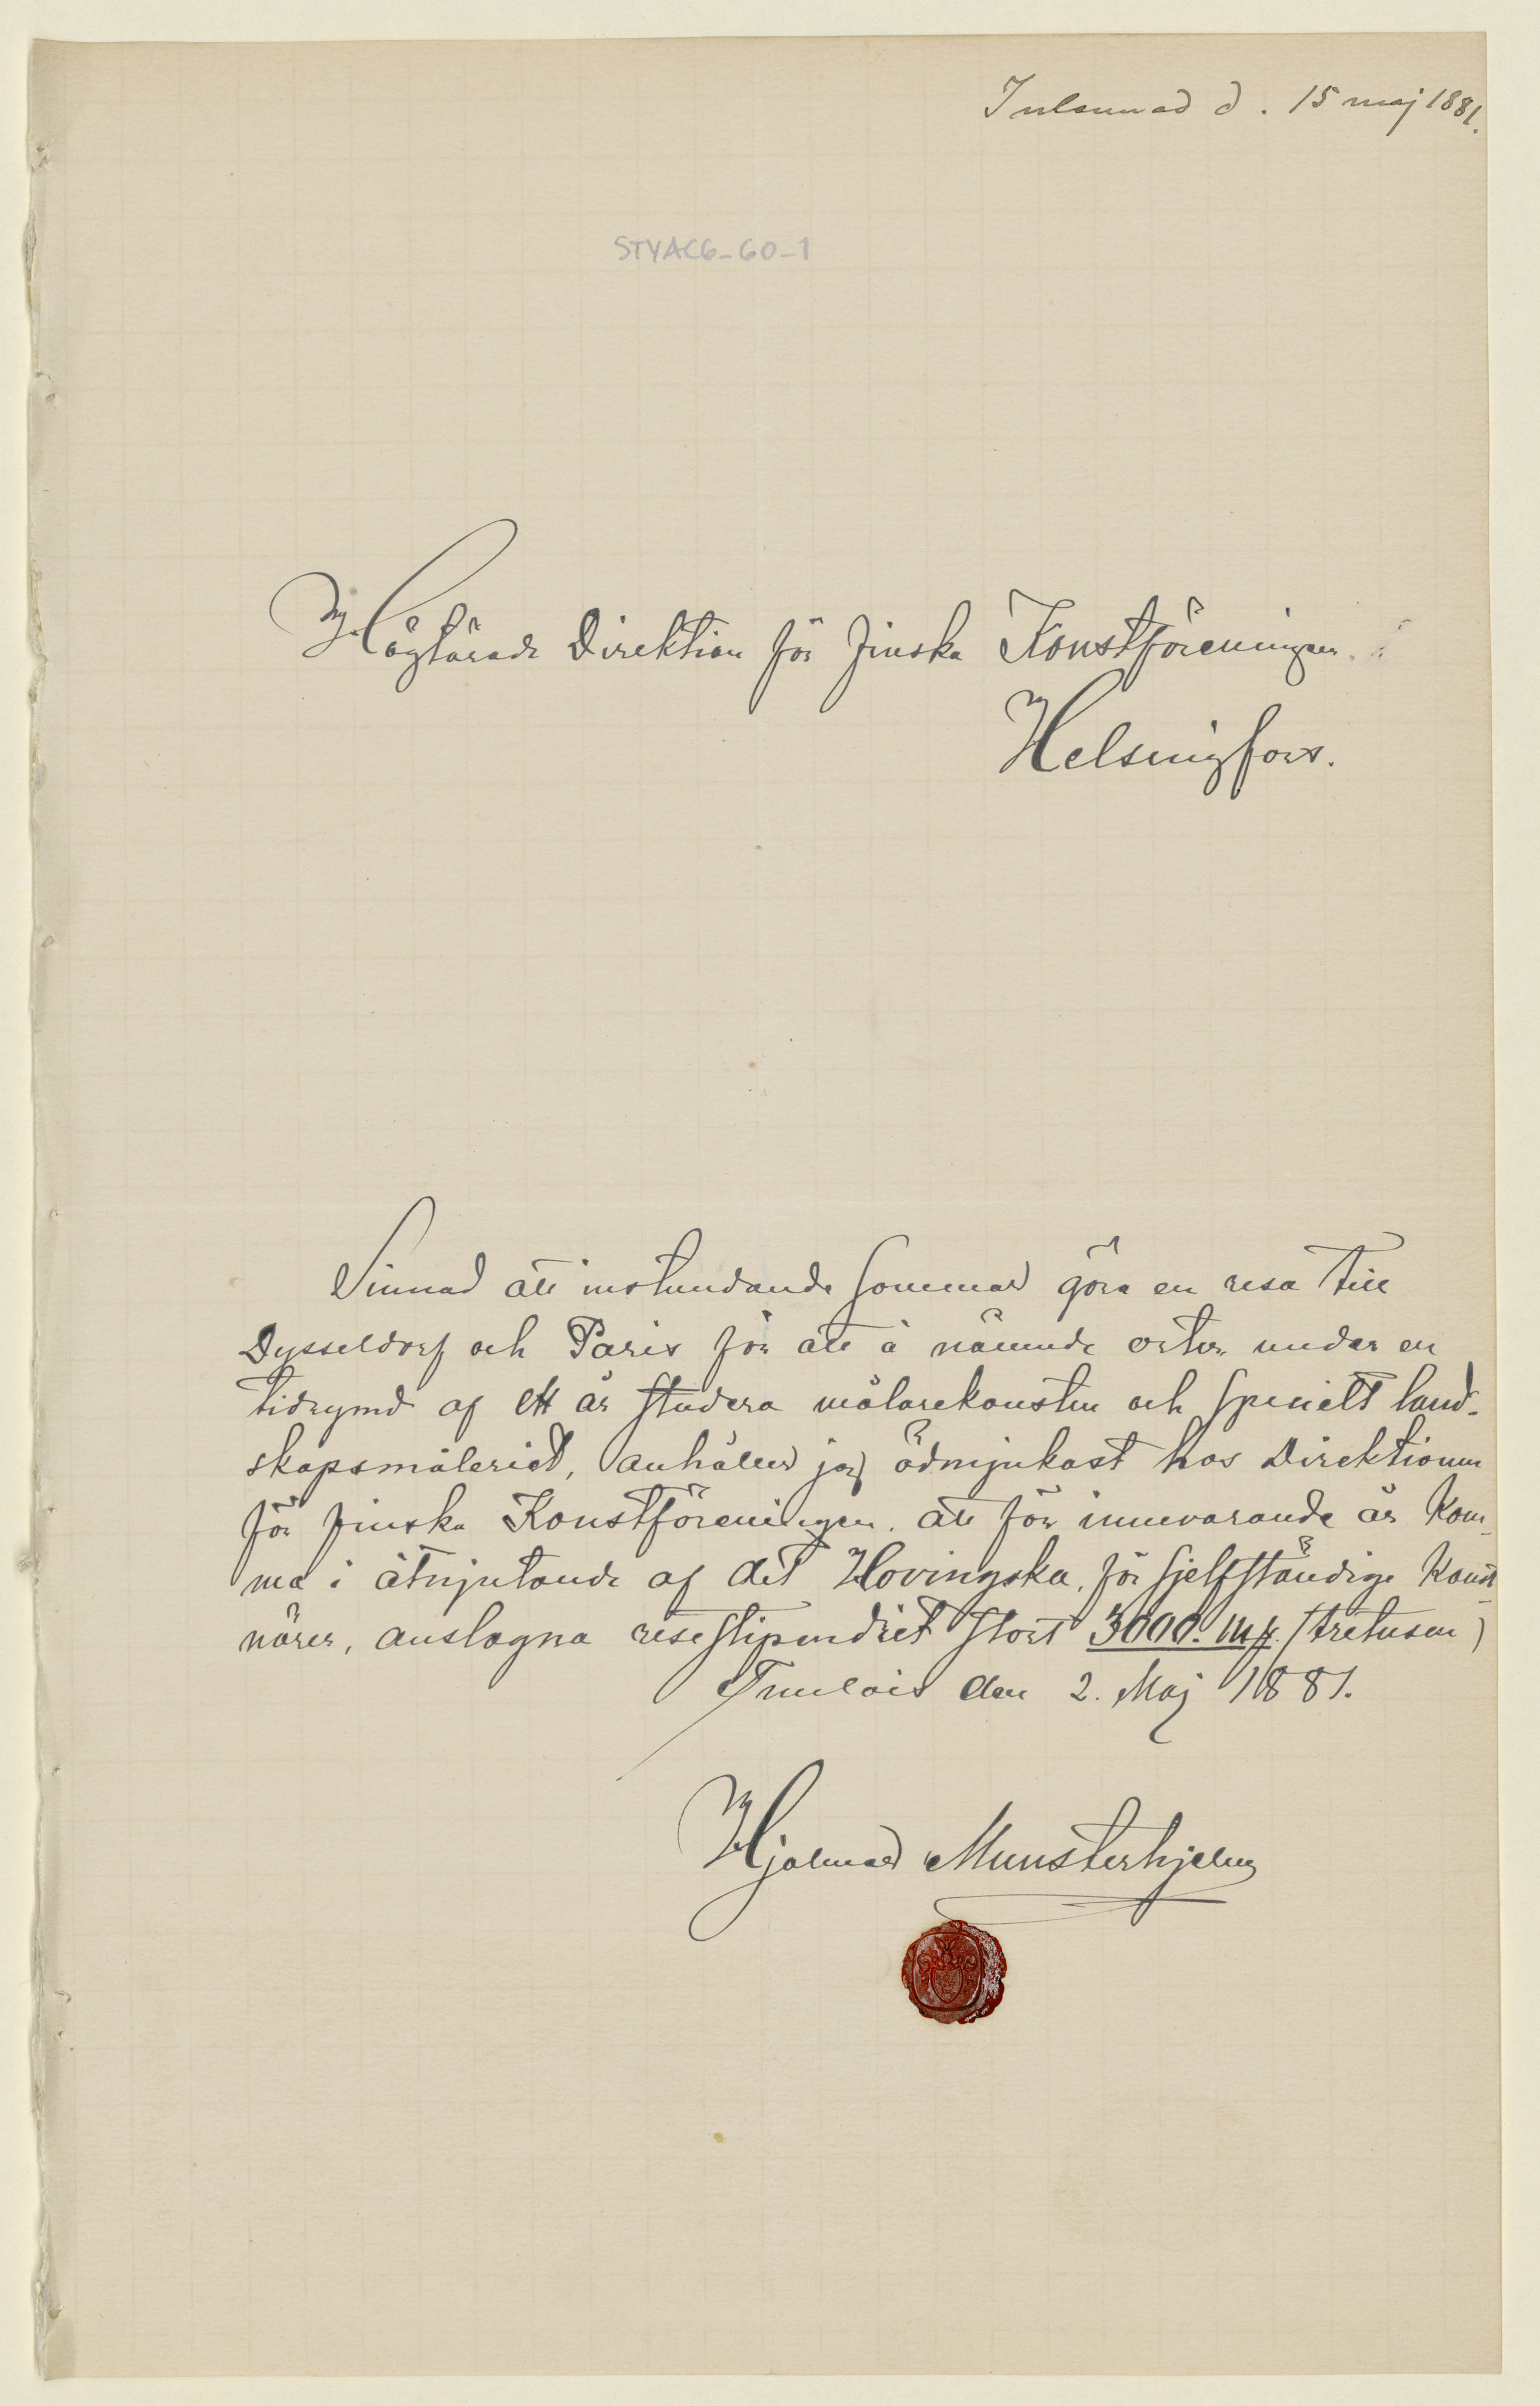 Inlemnad d. 15 maj 1881.
STYAC6-60-1
Högtärade Direktion för finska Konstföreningen.
Helsingfors.
Sinnad att instundande sommar göra en resa till
Dysseldorf och Paris för att å nämnde orter under en
tidrymd af ett år studera målarekonsten och specielt land-
skapsmåleriet, anhåller jag ödmjukast hos Direktionen
för finska Konstföreningen. att för innevarande år kom-
ma i åtnjutande af det Hovingska, för sjelfständige Konst-
närer, anslagna resestipendiet stort 3000. mk. (tretusen)
Tuulois den 2. Maj 1881.
Hjalmar Munsterhjelm